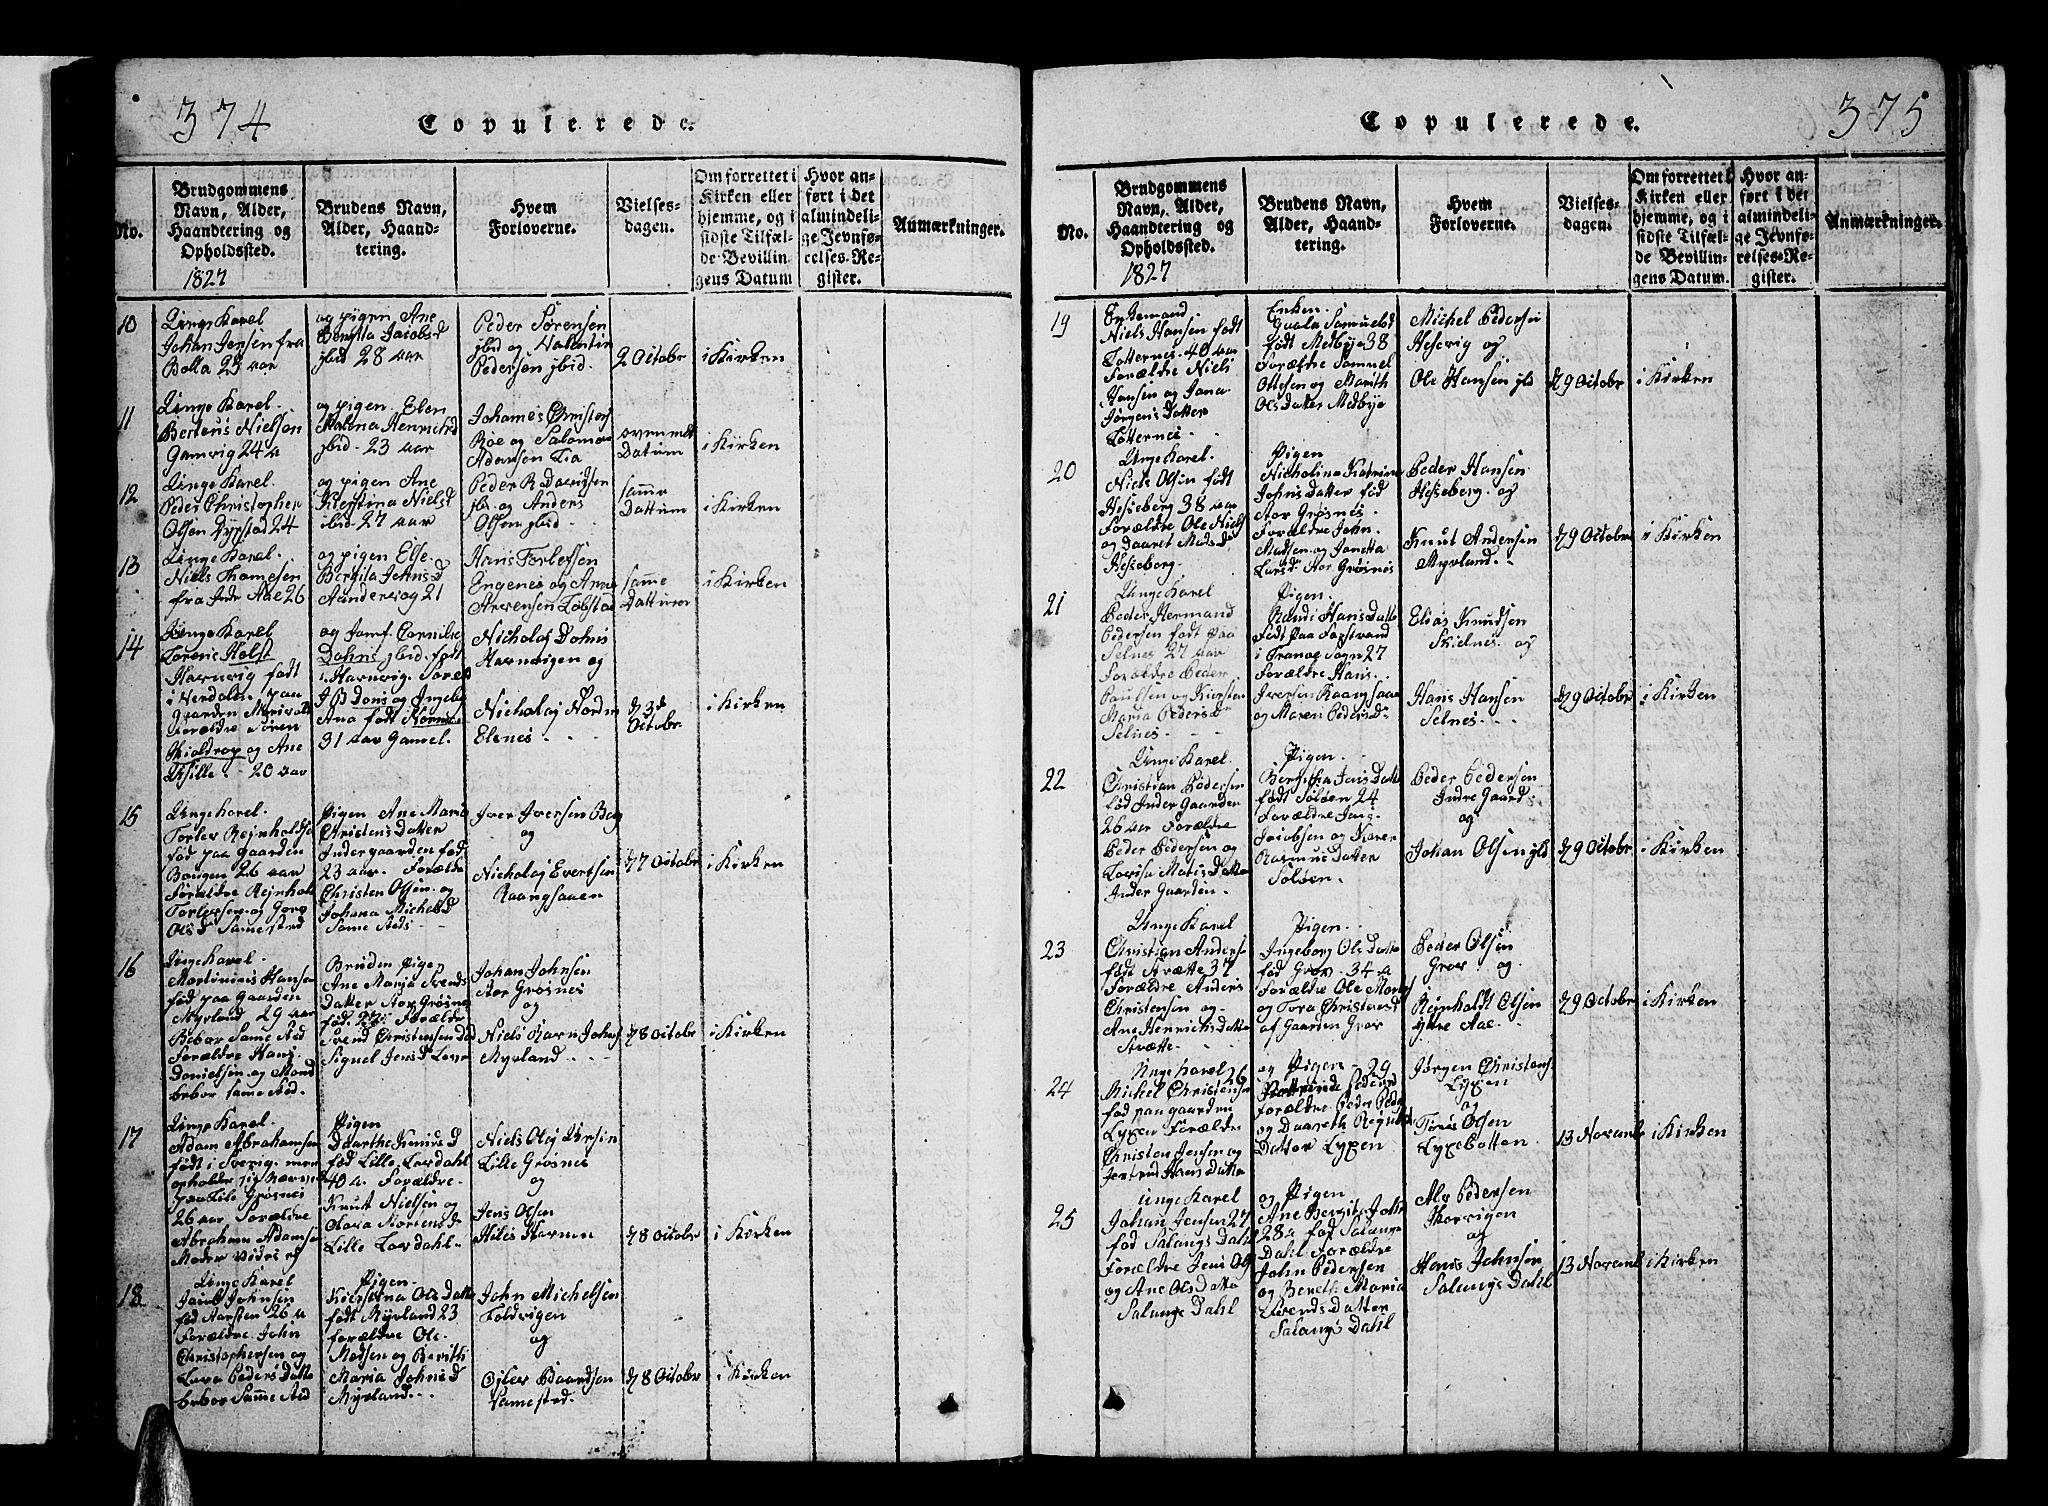 374
Copulerede.
No.
Brudgommens
Navn, Alder,
Haandtering og
Opholdssted.
1827
Brudens Navn,
Alder, Haand-
tering.
Hvem
Forloverne.
Vielses-
dagen.
Om forrettet i
Kirken eller
hjemme, og i
sidste Tilfæl-
de Bevillin-
gens Datum
Hvor an-
ført i det
almindeli-
ge Jevnfø-
relses-Re-
gister.
Anmærkninger.
10
Unge Karel
Johan Jensen fra
Bolla 23 aar
og pigen Ane
Jacobsd
ibid 28 aar
Peder Sørensen
ibid og Valentin
Pedersen ibid.
2 Octobr
i Kirken
11
Unge Karel.
Berteus Nielsen
Gamvig 24 a
og pigen. Elen
Henrichsd
ibid. 23 aar
Johanes Christofs
Roe og Salomon
Adamsen Lia
ovenmelt
Datum
i Kirken
12
Unge Karel.
Peder Christopher
Olsen Dyrstad 24
og pigen Ane
Kierstina Nielsd
ibid 27 aar
Peder R Davidsen
ibi. og Anders
Olsen ibid.
samme
Dattum
i Kirken
13
Unge Karel.
Niels Thomesen
fra Indr Aae 26
og pigen Else
Bergita Johnsd
21
Hans Torlefsen
Engenes og Arne
Arvensen Løbstad
samme
Dattum
i Kirken
14
Unge Karel
Holst
Havnvig født
i Nordalen paa
Gaarden
Foreldre Søren
og Ane
20 aar
og Jomf. Cornilia
Dahns ibid. født
i Havnvig. Foreld
J B Dons og Ingeb
Ana født
31 aar Gamel.
Nicholay Dohns
Havnvigen og
Nicholay Norden
Elsnes
d 3d
Octobr
i Kirken
15
Unge karel.
Torlev Rejnholdse
fød paa gaarden
Bangen 26 aar
Forældre Rejnhold
Torlevsen og Gore
Olsd Samested
Pigen Ane Maria
Christens Datter
Indergaarden fød
23 aar. Forældre
Christen Olsen og
Johana Michelsd
Same Steds
Iver Iversen Berg
og
Nicholay Evertsen
Kaangsaaen
d 7 Octobr
i Kirken
16
Unge karel.
Mortinius Hansen
fød paa Gaarden
Myrland 29 aar
Bebor Same Sted
Forældre Hans
Danielsen og
bebor same sted.
Bruden pigen
Ane Maria Svends
Datter Stor Grøsnes
fød. 27 Forældre
Svend Christensen
Signel Jensd
Johan Johnsen
Stor Grøsnes
og
Niels Johns
Myrland
d 8 Octobr
i Kirken
17
Unge Karel.
Adam Abrahamsen
født i Sverig. men
opholder sig
paa Lile Grøsnes
26 aar Forældre
Abraham Adamsen
Moder vides ej
Pigen
Daarthe Knuds D
fød Lille Lavdahl
40 a. Forældre.
Knut Nielsen og
Mortensd
Lille Lavdahl.
Niels Olej Larsen
Lille Grøsnes
og
Jens Olsen
Hilis Havnen
d 8 Octobr
i Kirken
18
Unge Karel
Jacob Johnsen
fød Aarsten 26 a
Forældre John
Christophersen og
Lava Peders Datte
bebor Samme Sted
Pigen.
Kierstina Ols Datte
født Myrland 23
forældre Ole
Madsen og Berith
Maria Johnsd
Myrland
John Michelsen
Foldvigen
og
Baardsen
Vamested.
d 8 Octobr
i Kirken
375
Copulerede.
No.
Brudgommens
Navn, Alder,
Haandtering og
Opholdssted.
1827
Brudens Navn,
Alder, Haand-
tering.
Hvem
Forloverne.
Vielses-
dagen.
Om forrettet i
Kirken eller
hjemme, og i
sidste Tilfæl-
de Bevillin-
gens Datum.
Hvor an-
ført i det
almindeli-
ge Jevnfø-
relses-Re-
gister.
Anmærkninger.
19
Enkemand
Niels Hansen født
Totternes. 40 aar
Forældre Niels
Hansen og Jana
Jørgens Datter
Totternes
Enken.
Samuelsd
født Medbye 38
Forældre Samuel
Ottesen og Marith
Ols Datter Medbye
Michel Pedersen
Hesevig og
Ole Hansen
d 9 Octobr
i Kirken
20
Unge Karel.
Niels Olsen født
Hesseberg 38 aar
Forældre Ole Niels
og Daaret Madsd
Hesseberg.
Pigen
Nicholina Katrina
Johns Datter fød
Stor Grøsnes.
Forældre John
Madsen og Janetta
Larsd Stor Grøsnes
Peder Hansen
Hesseberg. og
Knut Andersen
Myrland.
d 9 Octobr
i Kirken
21
Unge Karel
Peder Hermand
Pedersen født paa
Selnes 27 aar
Forældre Peder
Paulsen og Kiersten
Maria Pedersd
Selnes
Pigen.
Randi Hans Datte
født paa
i Tranøe Sogn 27
Forældre Hans
Iversen Kaangsaa
og Maren Pedersd
Elias Knudsen
Skielnes. og
Hans Hansen
Selnes.
d 9 Octobr
i Kirken
22
Unge Karel
Christian Pedersen
fød Inder Gaarden
26 aar Forældre
Peder Pedersen og
Lovisa Matis Datte
Inder Gaarden.
Pigen
Bergitha Jens Datte
født Søløen 24
Forældre Jens
Jacobsen og Karen
Rasmus Datter
Søløen.
Peder Pedersen
Indregaard.
og
Johan Olsen
d 9 Octobr
i Kirken
23
Unge Karel
Christian Anders
født Stvætte 37
Forældre Anders
Christensen og
Ane Henrichs Datte
Stvætte.
Pigen
Ingeborg Ols Datte
fød Grov. 34 a
Forældre Ole Morten
og Tora Christensd
af Gaarden Grov
Peder Olsen
Grov. og
Rejnholdt Olsen
Aae.
d 9 Octobr
i Kirken
24
Unge karel 26
Michel Christensen
fød paa gaarden
Lyxen Forældre
Christen Jensen og
Hans Datte
og Pigen 29
Pedersd
Forældre Peder Peder
og Daareth
Datter Lyxen
Jørgen Christens
Lyxen
og
Olsen
Lyxebotten.
13 Novemb
i Kirken
25
Unge Karel
Johan Jensen 27
fød Salangs Dahl
Forældre Jens Ols
og Ane Ols Datte
Salangs Dahl
og Pigen
Ane Bergite Johns
28 a fød Salangs
Dahl Forældre
John Pedersen
og Bereth Maria
Svends Datter
Salangs Dahl
Ale Pedersen
og
Hans Johnsen
Salangs Dahl
13 Novemb
i Kirken